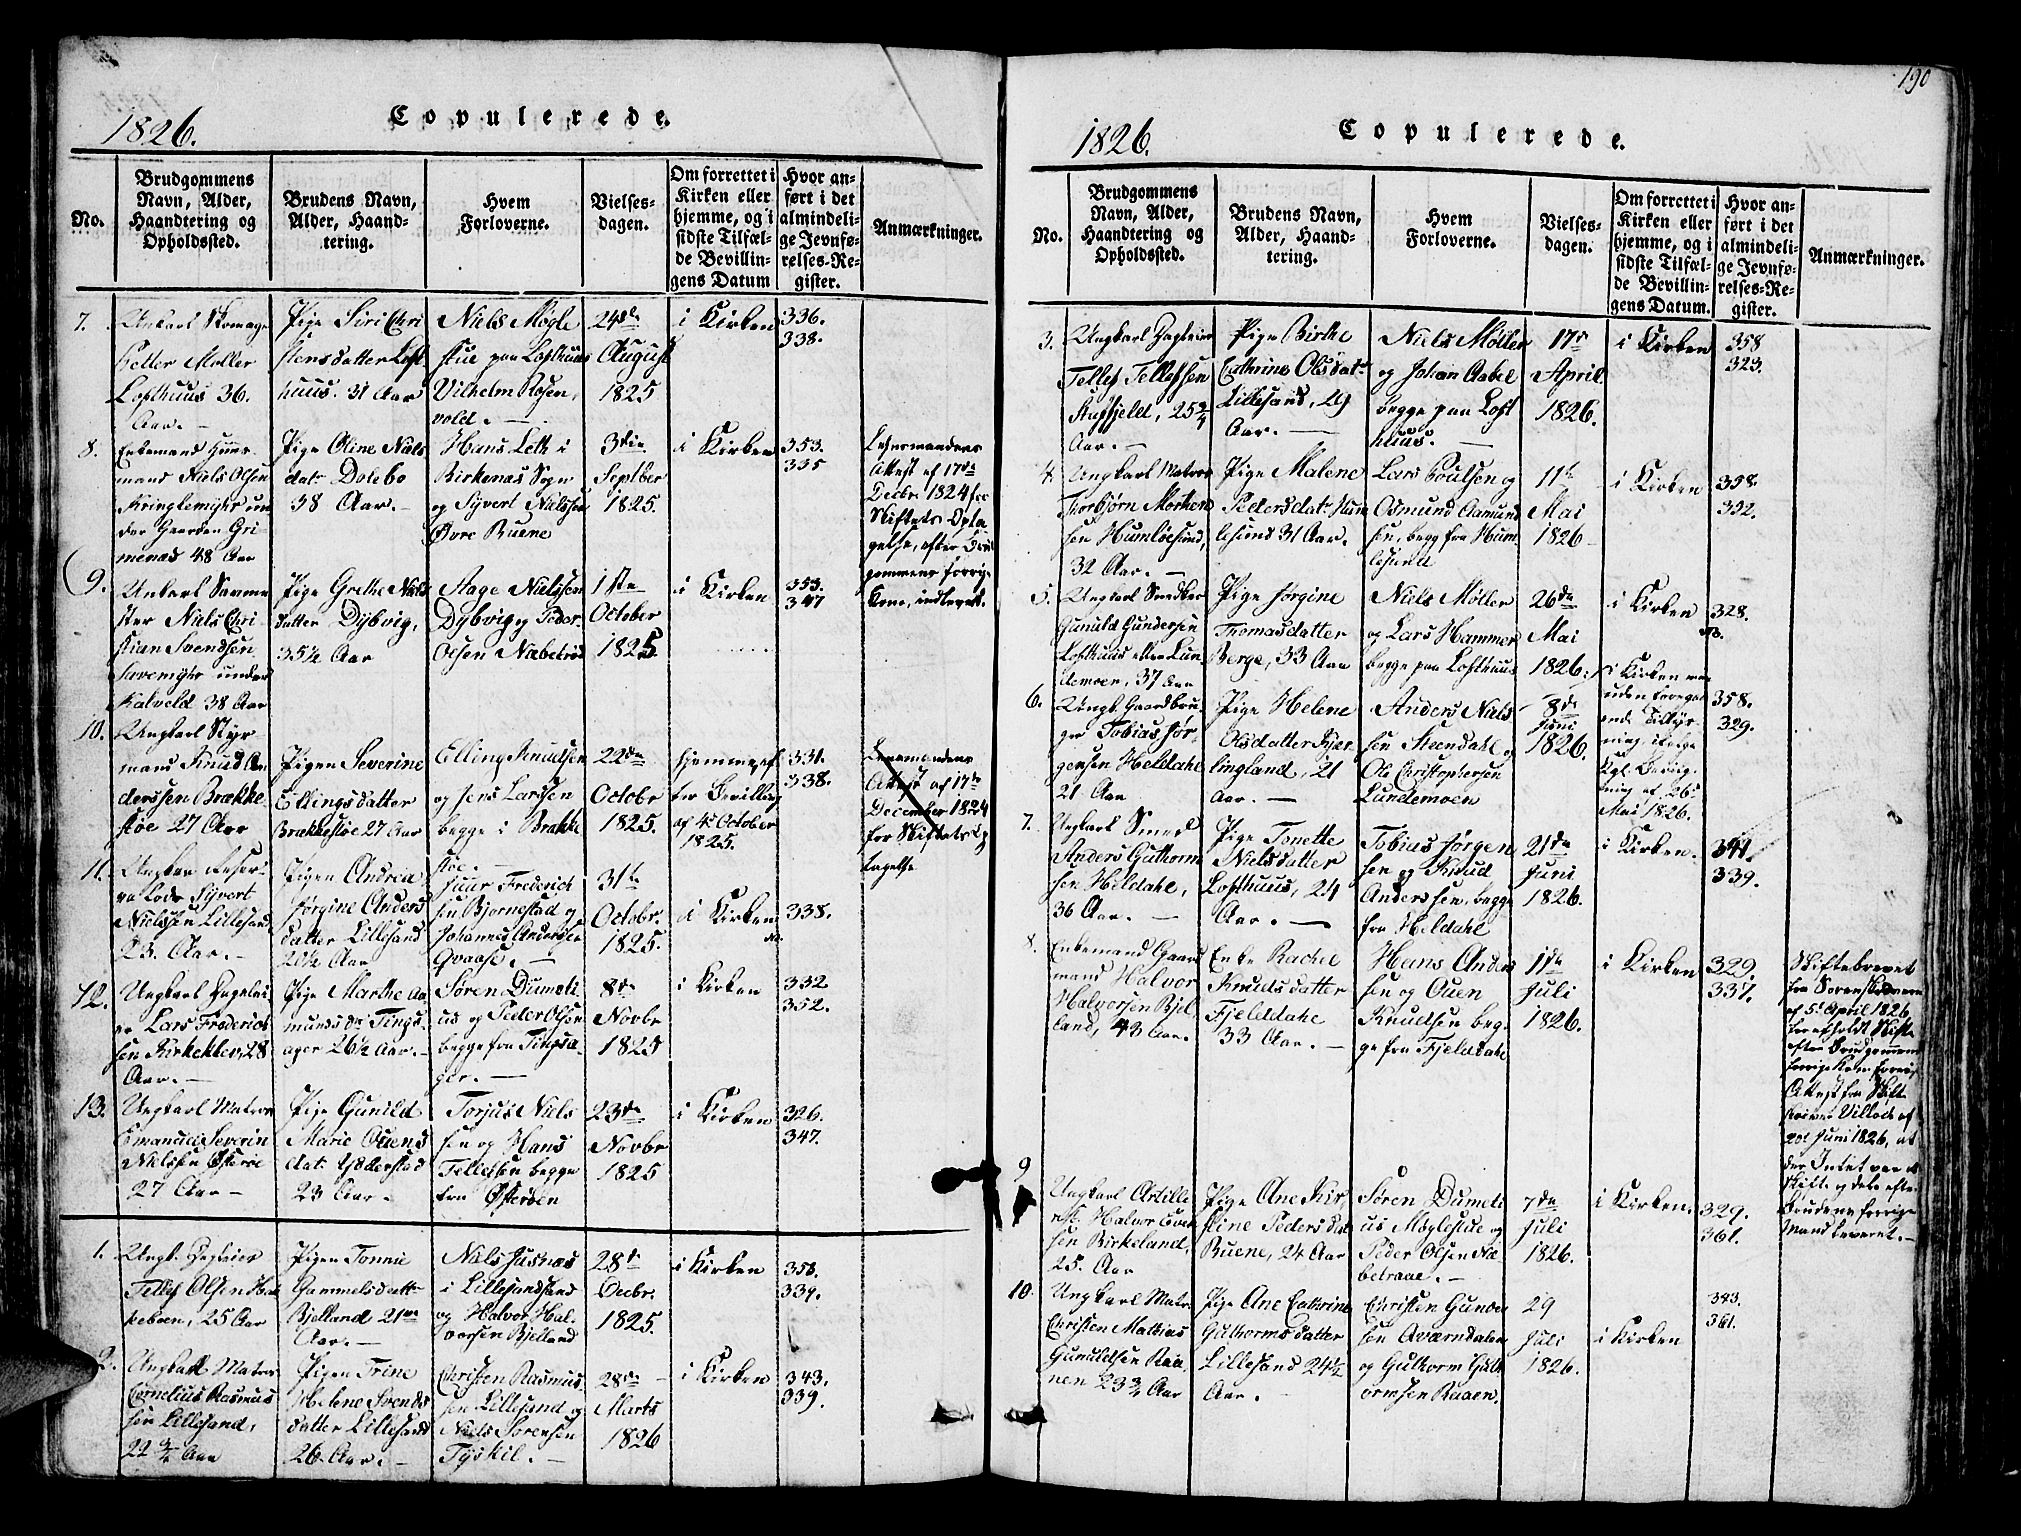 190
1826.
Copulerede.
No.
Brudgommens Navn, Alder, Haandtering og Opholdssted.
Brudens Navn, Alder, Haandtering.
Hvem Forloverne.
Vielsesdagen.
Om forrettet i Kirken eller hjemme, og i sidste Tilfælde Bevillingens Datum
Hvor anført i det almindelige Jevnførelses-Register.
Anmærkninger.
7.
Lofthuus 36.
Aar.
Pige Siri Chri
stensdatter Loft
huus. 31 Aar
Niels Møgle
stue paa Lofthuus
Vilhelm Rosen,
vold.
24de
August
1825
i Kirken
336.
338.
8.
Enkemand Huus
mand Niels Olsen
der Gaarden Gri
menæs 48 Aar
Pige Oline Niels
datr Dolebo
38 Aar.
Hans Leth i
Birkenæs Sogn
og Syvert Nielssen
Øvre Buene
3die
Septber
1825.
i Kirken
353.
335
Lehnsmandens
Attest af 17de
Decbr. 1824 for
Skiftets Opta
gelse, efter Brud
gommens forrige
Kone, indleveret.
9.
ster Niels Chri
stian Svendsen
Kalveld 38 Aar
Pige Grethe Niels
datter Dybvig,
35½ Aar
Aage Nielssen
Dybvig og Peder
Olsen Næbetræ
1ste
October
1825
i Kirken
353.
347
10.
Ungkarl Styr
mand Knud An
derssen Brække
støe 27 Aar
Pigen Severine
Ellingsdatter
Brækkestøe 27 Aar
Elling Knudsen
og Jens Larssen
begge i Brække
støe.
22de
Octobr
1825.
hjemme, ef
ter Bevilling
af 4de October
1825.
331.
338.
Lensmandens
Attest af 17de
December 1824
for Skiftets Op
tagelse
11.
Ungkarl Reser
Syvert
Nielssen Lillesand,
23. Aar.
Pigen Andrea
Jørgine Anders
datter Lillesand
20½ Aar
Juur Frederich
sen Bjørnestad og
Johannes Anderssen
Qvaase.
31te
Octobr.
1825.
i Kirken
338.
do.
12.
Lars Frederich
sen Kirkeklev, 28
Aar.
Pige Marthe Aa
munds dtr Tings
ager 26½ Aar.
Søren Dumeti
us og Peder Olsen
begge fra Tingsa
ger.
8de
Novbr
1825
i Kirken
332
352.
13.
Ungkarl Matros
Emanuel Severin
Nielssen Østerøe
27 Aar
Pige Gunild
Marie Ouens
datr Ydderstad
23 Aar.
Torjus Niels
sen og Hans
Tellefsen begge
fra Østerøen
23de
Novbr
1825
i Kirken
326.
347.
1.
Tellef Olsen
25 Aar
Pigen Tonnie
Gammelsdattr
Bjelland 21
Aar.
Niels Jusnæs
i Lillesandsund
og Halvor Hal
vorsen Bjelland
28de
Decbr.
1825.
i Kirken
358.
339.
2.
Ungkarl Matros
Cornelius Rasmus
sen Lillesand,
22 3/4 Aar
Pigen Trine
Helene Svends
datter Lillesand
26 Aar.
Christen Rasmus
sen Lillesand og
Niels Sørensen
Tyskil.
28de
Marts
1826
i Kirken
343.
339.
1826.
Copulerede.
No.
Brudgommens Navn, Alder, Haandtering og Opholdssted.
Brudens Navn, Alder, Haandtering.
Hvem Forloverne.
Vielsesdagen.
Om forrettet i Kirken eller hjemme, og i sidste Tilfælde Bevillingens Datum.
Hvor anført i det almindelige Jevnførelses-Register.
Anmærkninger.
3.
Tellef Tellefsen
25 3/4
Aar.
Pige Birthe
Cathrine Olsdatr
Lillesand, 29
Aar.
Niels Møller
og Johan Aabel
begge paa Loft
huus.
17de
April
1826.
i Kirken
358
323.
4.
Ungkarl Matros
Thorbjørn Morten
sen Humlesund,
32 Aar.
Pige Malene
Pedersdatr Hum
lesund 31 Aar.
Lars Poulsen og
Osmund Aamund
sen, begge fra Hum
lesund
11te
Mai
1826
i Kirken
358.
352.
5.
Ungkarl Snedker
Gunuld Gundersen
Lofthuus eller Lun
demoen, 37 Aar
Pige Jørgine
Thomasdatter
Berge, 33 Aar
Niels Møller
og Lars Hammer
begge paa Lofthuus
26de
Mai
1826.
i Kirken
328.
do.
6.
Ungk. Gaardbru
ger Tobias Jør
gensen Heldahl
21 Aar
Pige Helene
Olsdatter Kjær
lingland, 21
Aar.
Anders Niels
sen Steendahl og
Ole Christophersen
Lundemoen
8de
Juni
1826.
i Kirken
uden foregaa
ende Tillys
ning, ifølge
Kgl. Bevilg
ning af 26de
Mai 1826.
358.
329.
7.
Ungkarl Smed
Anders Guthorm
sen Heldahl,
36 Aar.
Pige Tonette
Nielsdatter
Lofthuus, 24
Aar.
Tobias Jørgen
sen og Knud
Anderssen, begge
fra Heldahl
21de
Juni
1826.
i Kirken.
341.
339.
8.
Enkemand Gaard
mand Halvor
Halvorsen Bjel
land, 43 Aar.
Enke Rachel
Knudsdatter
Fjeldahl
33 Aar.
Hans Ander
sen og Ouen
Knudsen beg
ge fra Fjeldahl
11te
Juli
1826.
i Kirken
329.
337.
Skiftebrevet
fra Sorenskriveren
af 5te April 1826
for afholdt Skifte
efter Brudgommens
forrige Kone
Attest fra Skift
af
20de Juni 1826, at
der Intet var at
skifte og dele efter
Brudens forrige
Mand leveret.
9
Ungkarl Artille
rist Halvor
sen Birkeland,
25. Aar
Pige Ane Kir
stine Peders datr
Buene, 24 Aar
Søren Dumeti
us Møglestue og
Peder Olsen Næ
betraae.
7de
Juli
1826.
i Kirken.
329.
361.
10.
Ungkarl Matros
Christen Mathias
Gunuldsen Raa
nen 23 3/4 Aar
Pige Ane Cathrine
Guthormsdatter
Lillesand 24½
Aar.
Christen Gunder
sen Aværndalen
og Guthorm Guth
ormsen Ruaen.
29
Juli
1826.
i Kirken
343.
361.